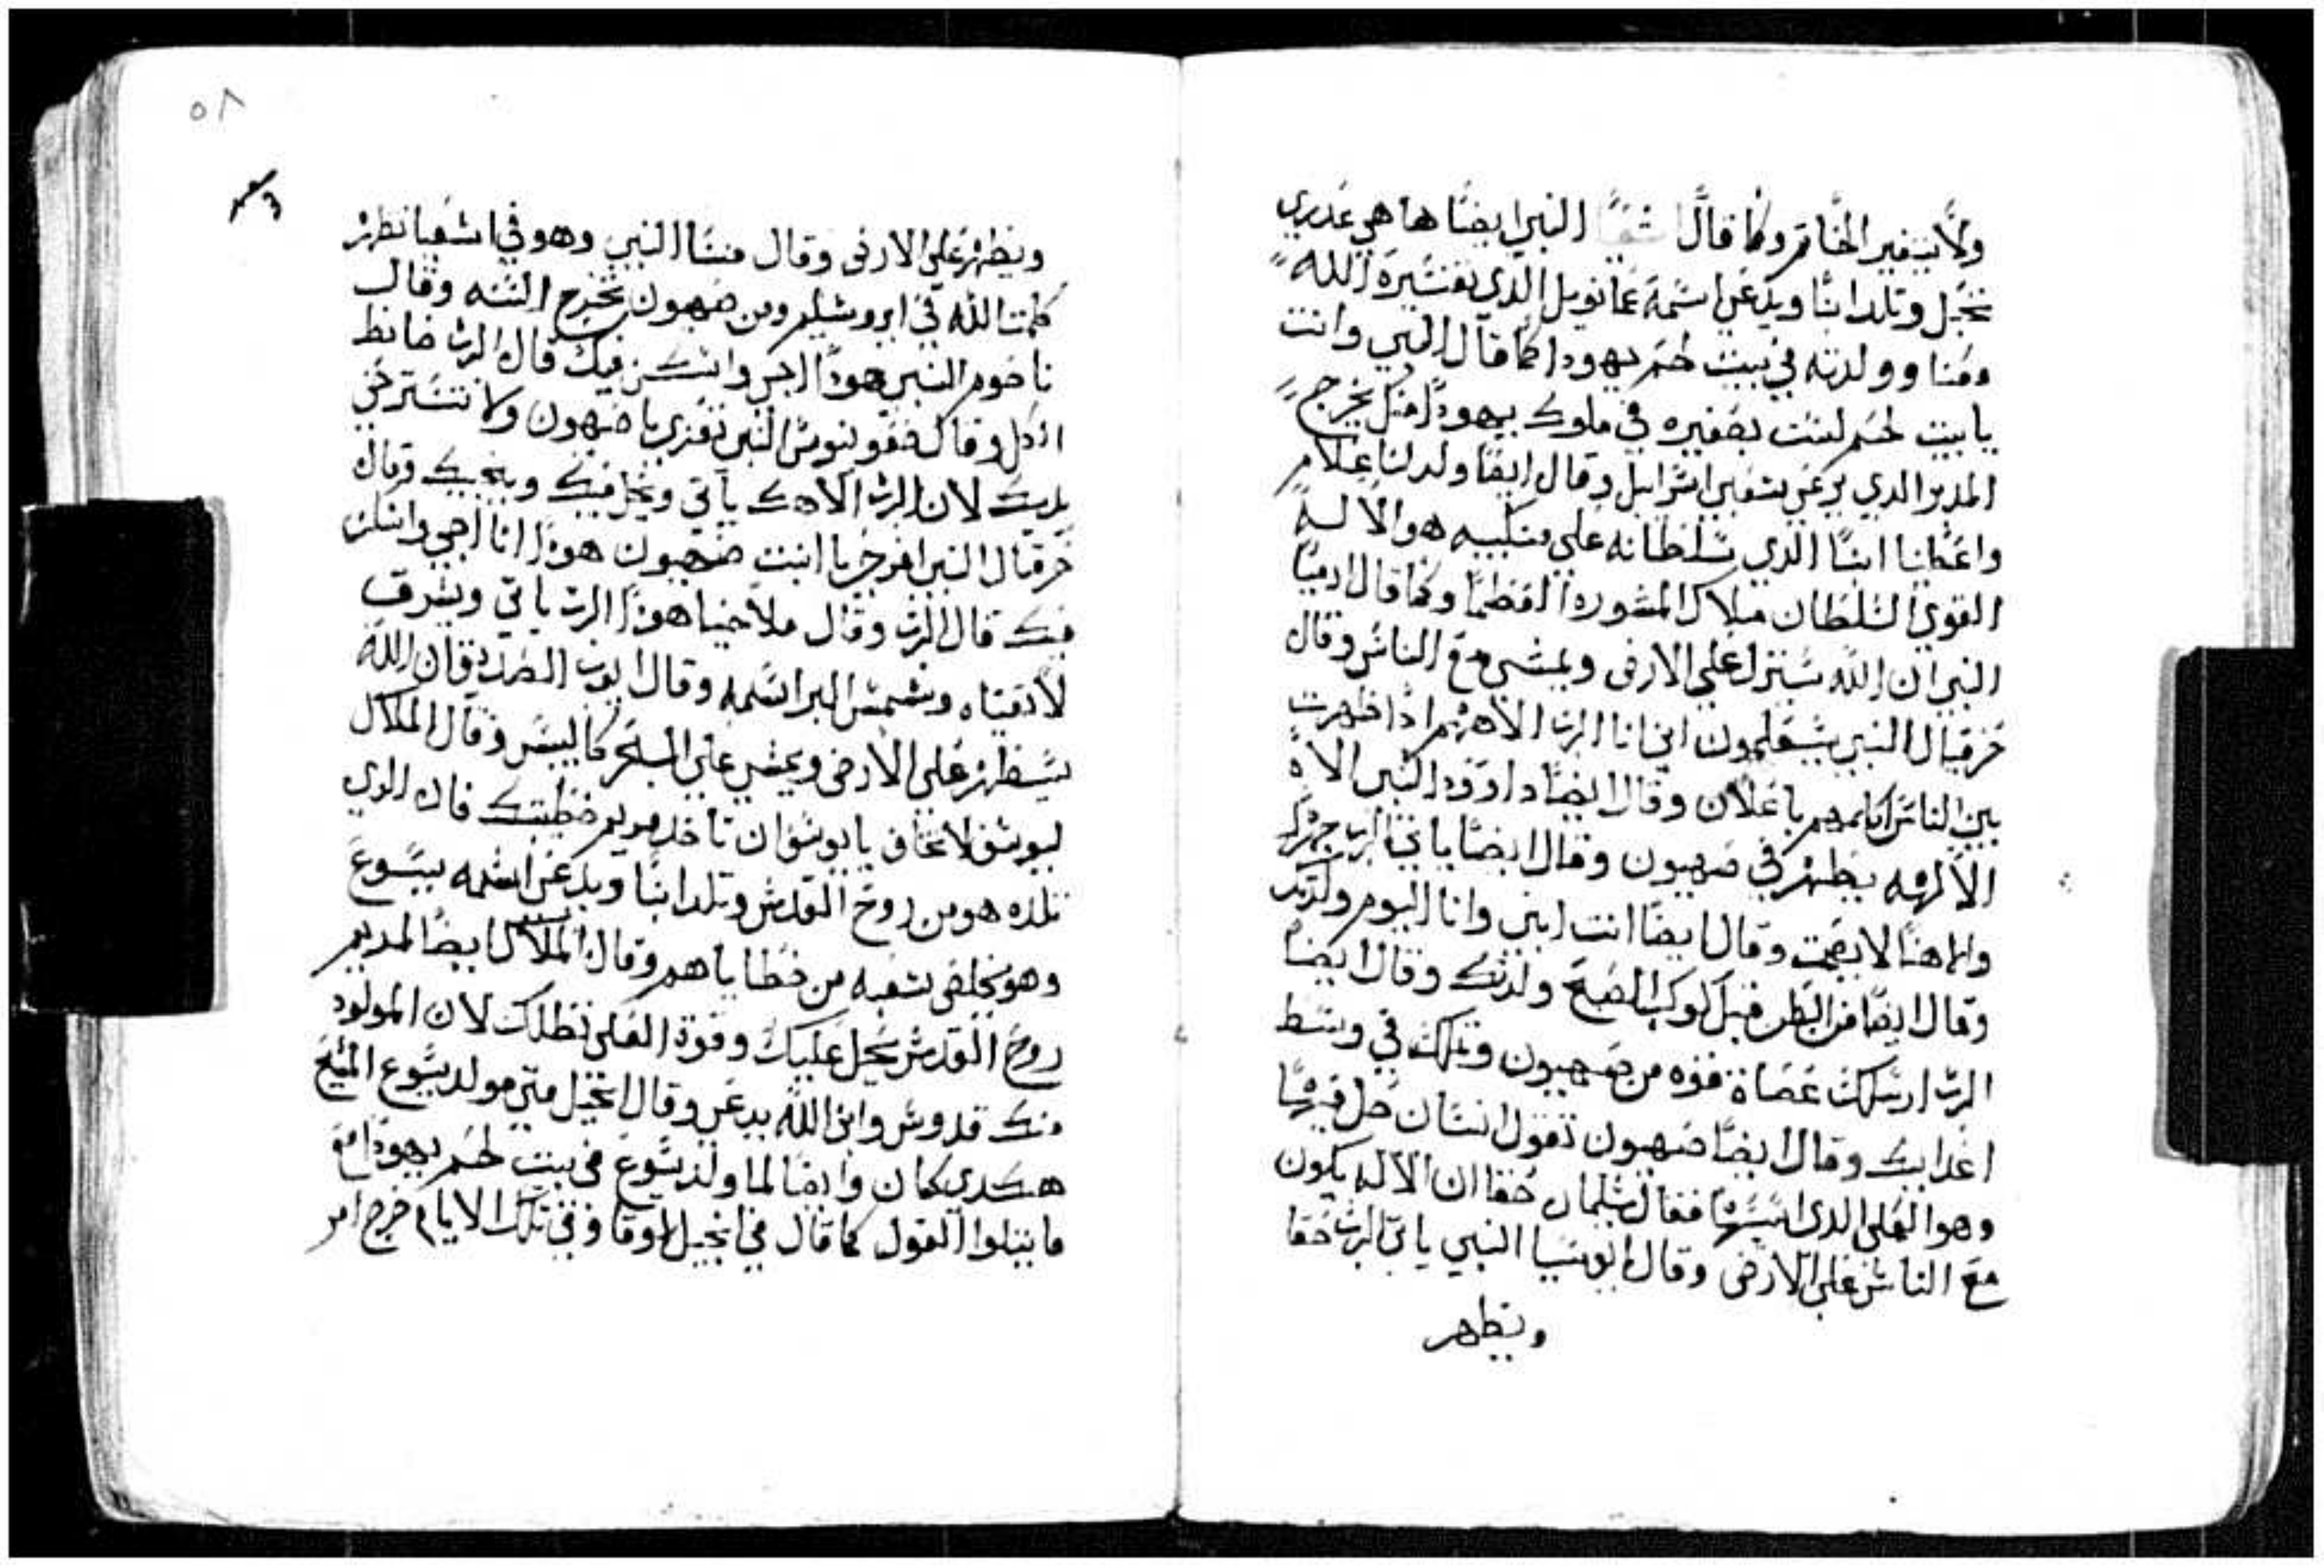 ولا يتغير الخاتم وكما قال اشعيا النبي ايضا هاهي عدري
تحبل وتلد ابنا ويدعي اسمه عمانويل الدي تفسيره الله
معنا وولدته في بيت لحم يهودا كما قال النبي وانت
يا بيت لحم لست بصغيره في ملوك يهودا منك يخرج
المدبر الدي يرعي شعبي اسراييل وقال ايضا ولد لنا غلام
واعطانا ابنا الدي سلطانه علي منكبيه هو الاله
القوي السلطان ملاك المشوره العظما وكما قال ارميا
النبي ان الله سينزل علي الارض ويمشي مع الناس وقال
حزقيال النبي سيعلمون اني انا الرب الاههم ادا ظهرت
بين الناس اكلمهم باعلان وقال ايضا داوود النبي الاه
الالهه يظهر في صهيون وقال ايضا ياتي الرب جهرا
والاهنا لا يصمت وقال ايضا انت ابني وانا اليوم ولدتك
وقال ايضا من البطن قبل كوكب الصبح ولدتك وقال ايضا
الرب ارسلك عصاة قوه من صهيون وتملك في وسط
اعدايك وقال ايضا صهيون تقول انسان حل فيها
وهو العلي الدي اسسها فقال سليمان حقا ان الاله يكون
مع الناس علي الارض وقال النبي ياتي الرب حقا
ويظهر
٥٨
ويظهر علي الارض وقال منسا النبي وهو في اشعيا تظهر
كلمت الله في ايروشليم ومن صهيون تخرج السنه وقال
ناحوم النبي هودا اجي واسكن فيك قال الرب ضابط
الكل وقال النبي تعزي يا صهيون ولا تسترخي
يديك لان الرب الاهك ياتي ويحل فيك وينجيك وقال
حزقيال النبي افرحي يا ابنت صهيون هودا انا اجي واسكن
فيك قال الرب وقال ملاخيا هودا الرب ياتي ويشرق
لاتقياه وشمس البر اسمه وقال ايوب الصديق ان الله
سيظهر علي الارض ويمشي علي البحر كاليبس وقال الملاك
ليوسف لا تخاف يا يوسف ان تاخد مريم خطيبتك فان الدي
تلده هو من روح القدس وتلد ابنا ويدعي اسمه يسوع
وهو يخلص شعبه من خطاياهم وقال الملاك ايضا لمريم
روح القدس يحل عليك وقوة العلي تظلك لان المولود
منك قدوس وابن الله يدعي وقال انجيل متي مولد يسوع المسيح
هكدي كان وايضا لما ولد يسوع في بيت لحم يهودا مع
ما يتلوا القول كما قال في انجيل لوقا وفي تلك الايام خرج امر